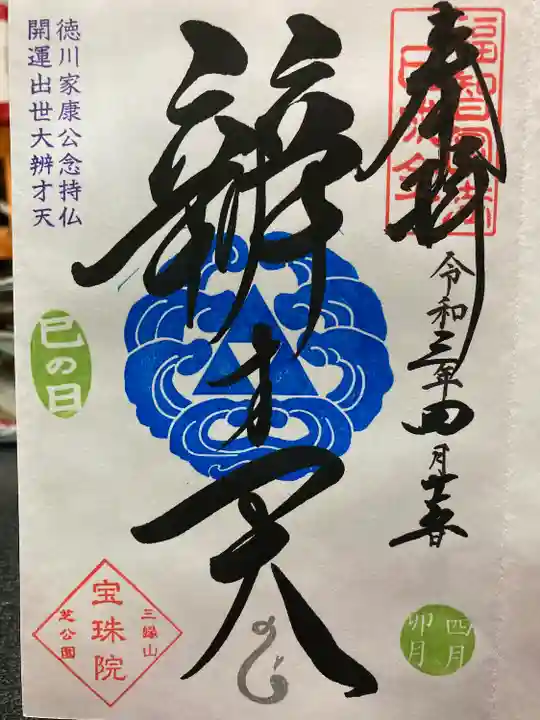 奉拝
令和三年四月廿五日
四月
卯月
辨才天
徳川家康公念持仏
開運出世大辨才天
巳の日
三縁山
宝珠院
芝公園